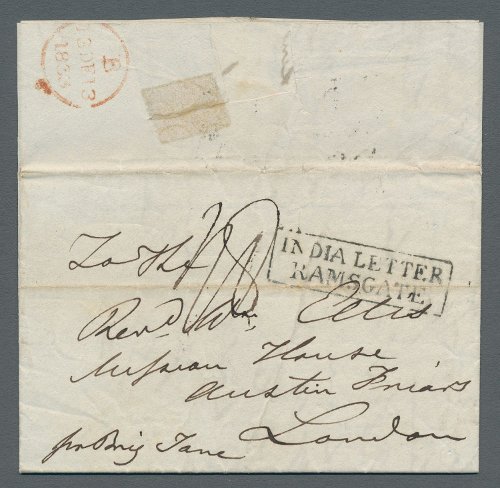 E
1835
INDIA LETTER
RAMSGATE
To the
Revd. Wm. Ellis
Mission House
Austin Friars
London
pr Brig Jane